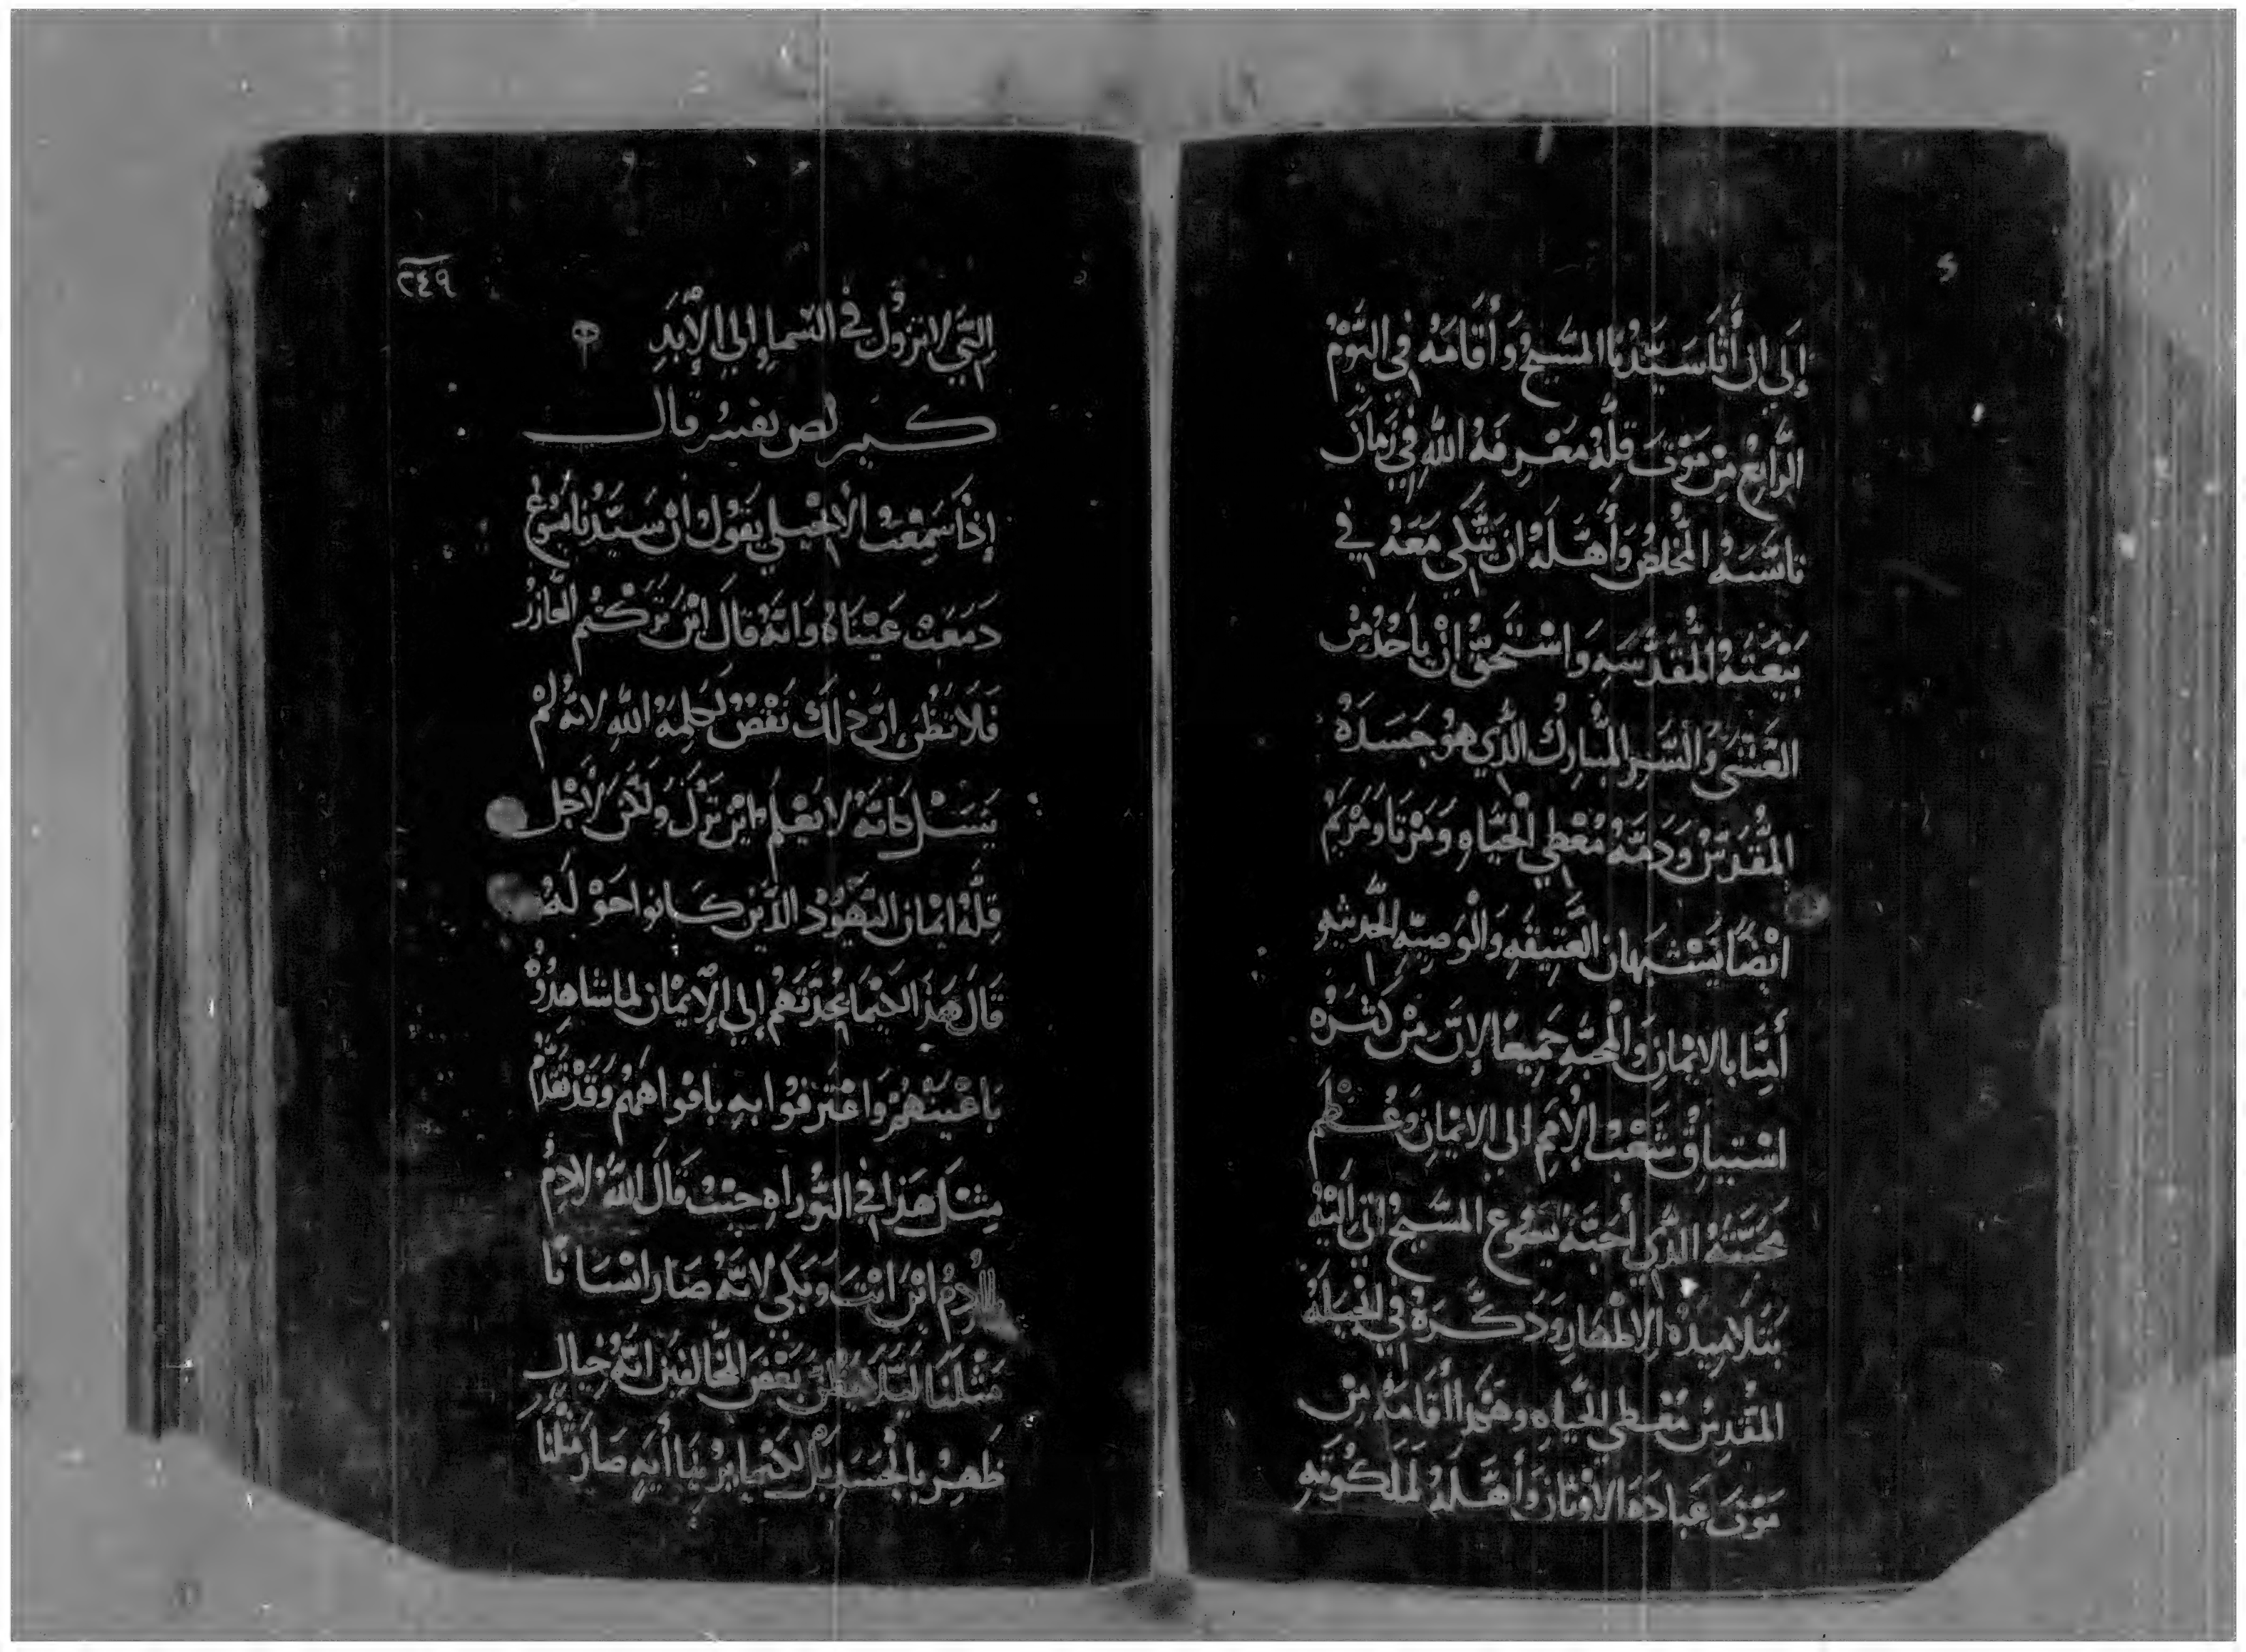 إلَي ان أتَا سَيِّدُنا المسَيحُ وَأقَامَهُ في اليَوْمُ
الرَّابعُ مِنْ مَوْتَ قِلِّهُ مَعْرِفَهُ اللهِ فِي زَمَانِ
تانسَهُ المُخلصُ وَأهَّلهُ ان يَتَّكي مَعَهُ في
بَيْعَتهُ المقَدَّسَهِ وَاسْتَحقَّ انْ يأخُذُ مِنْ
العَشَىَ وَالسَّرِ المبُارك الَّذي هوُ جَسَدَهُ
المقَّدَسْ وَدَمَهُ مُعْطي الْحَيَاهِ وَمَرْتَا وَمَرْيَمُ
ايْضًا يَشْبَهان العَتِيقَهِ وَالْوَصِيَّهِ الحَديثهِ
أمَنِا بالايْمانِ وَالْمحَبَّهِ جَميعًا لإنَّ مِنْ كَثْرَه
اشتياقُ شَعْبْ الأمَمِ الي الايْمانِ وَعُظمَ
مَحَبَتَّهُ الذَّي أحَبَّهُ يَسُوع المسَيحُ اتي اليْهُ
بتَلامِيذَهُ الاطهَارِ وَذكَّرَهُ في انجيْلَهُ
المقُدسْ مُعْطي الحَّيَاهِ وهَكَذا أقَامَهُ مِنْ
مَوْتَ عِبَادَهَ الاوْثانِ وَأهَّلهُ لمَلَكُوتِهِ
٢٤٩
التَّي لا تزوُل في السَّماءِ إلي الأبَدِ
كـيـرلص يفسر قال
إذَا سَمِعْتَ الأنجْيلي يقَوُل انْ سَيِّدُنا يَسُوعَ
دَمَعَتْ عَيْنَاهُ وَانَّهُ قالَ ايْنَ تَرَكْتُم العَازرُ
فَلا تظَن انَّ ذلَكَ نَقْصٌ لكلِمَهُ اللهِ لانَّهُ لَمْ
يَسَلْ كانَّهُ لا يَعْلمَ ايْنَ تَرَكَ وَلَكَنَ لاجْل
قِلَّهْ ايْمان اليَّهوُدْ الذَّيْن كـانوا حَوْلَهُ
قالَ هَذ الكيْمَا يَجْذبَهم إلي الإيْمان لما شاهَدوُهُ
بَاعْينهمْ وَاعْتَرفوُا بهِ بافواهِهمْ وَقَدْ تقَدَّمَ
مِثْلَ هَذا في التَّوُراهِ حَيْثُ قالَ اللهُ لادمُ
ادمُ ايْنَ انْتَ وَبَكي لانَّهُ صَار انسَانَا
مثْلنَا ليَلا يَظُنَّ بَعْضَ المخَالفيْن انَّهُ خيال
ظَهرُ بالْجسَدِ بَلْ لكَيْما يُريْنَا أنهِ صَارَ مثْلنُا